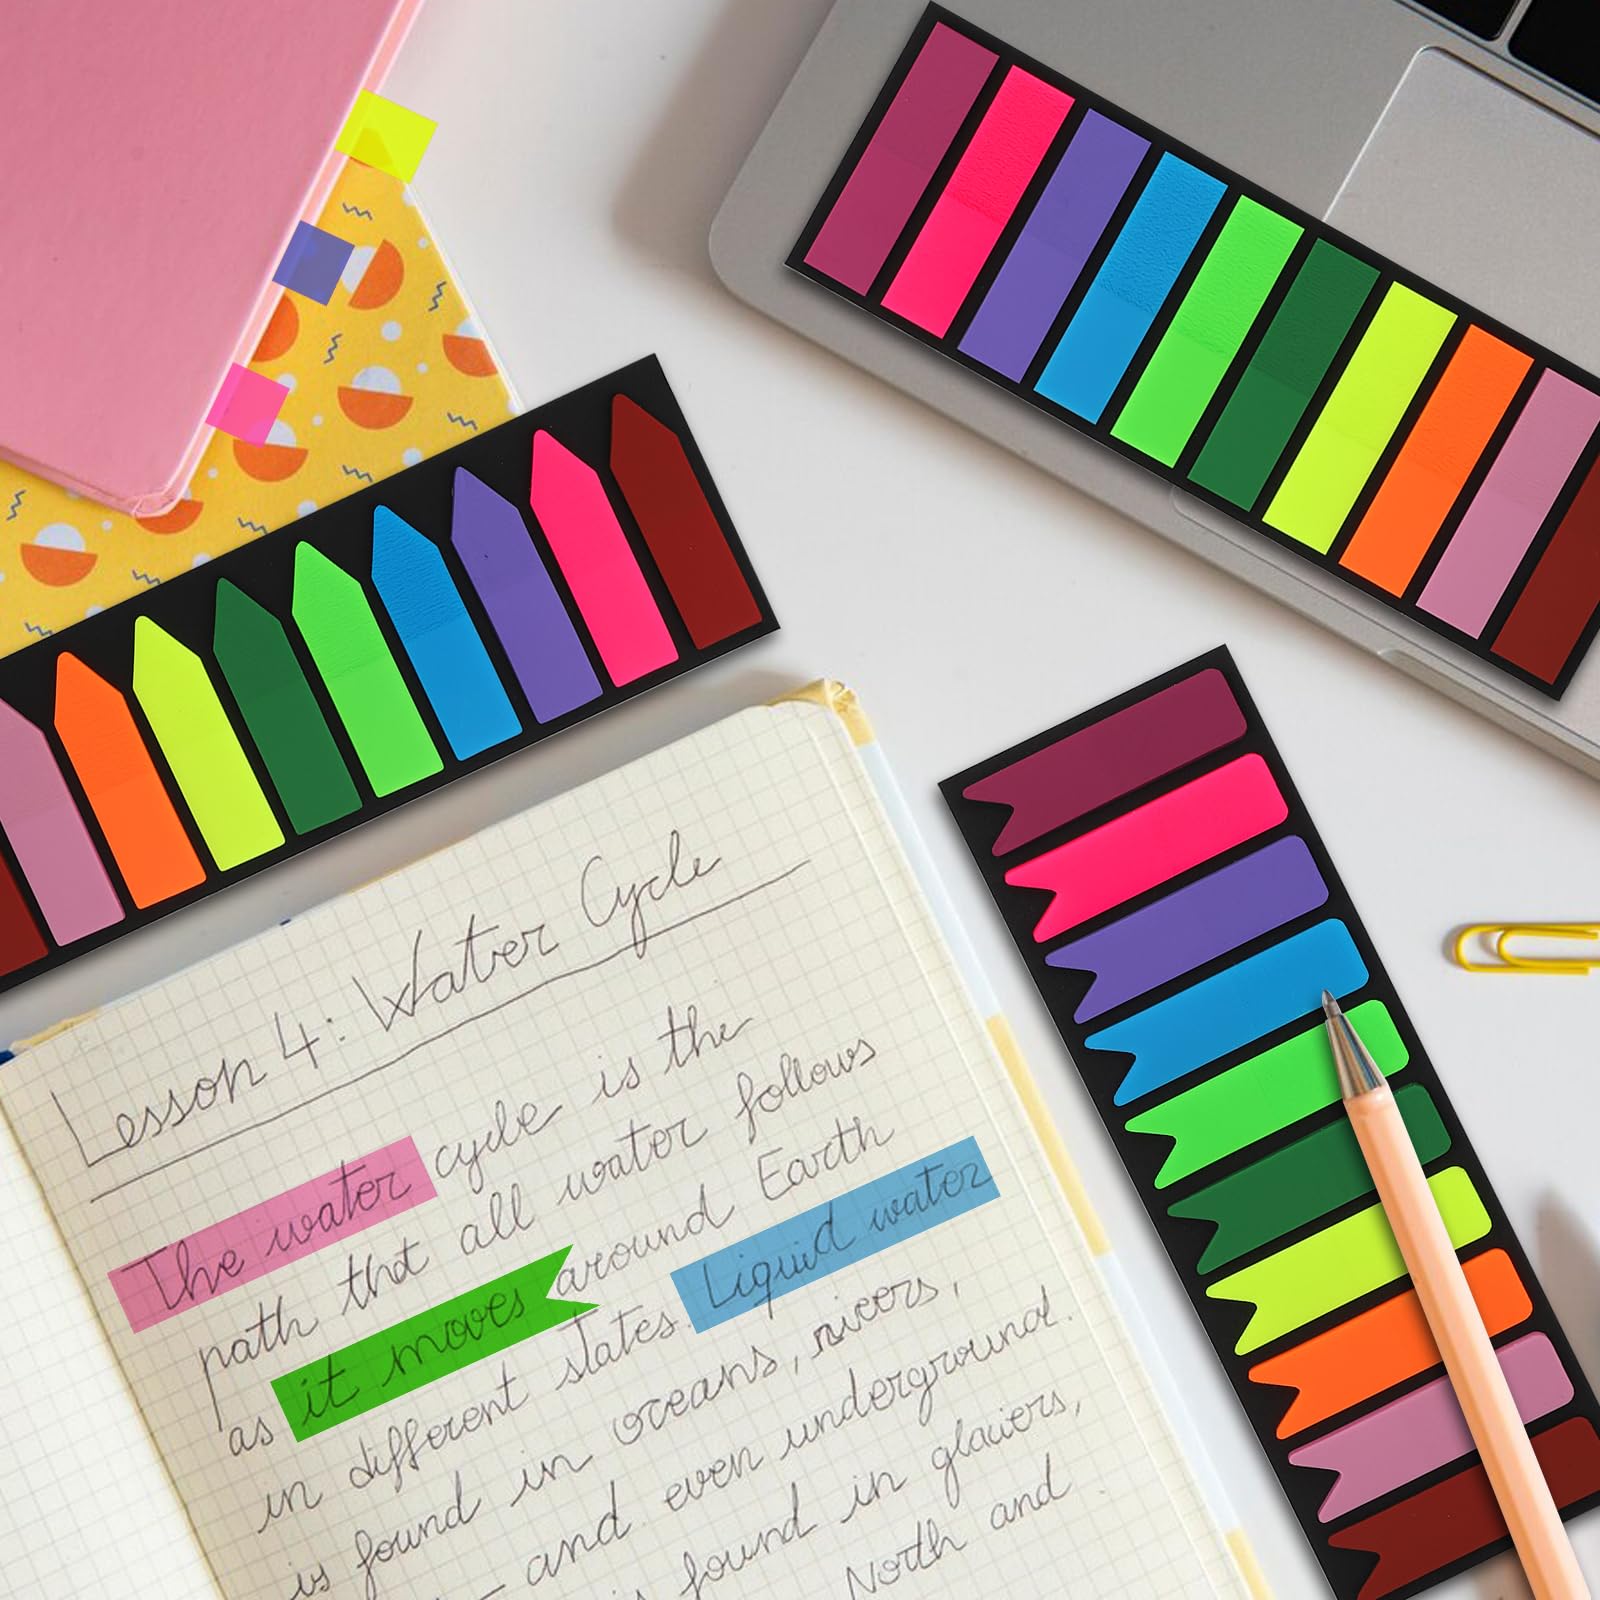 Lesson 4: Water Cycle
The water cycle is the
path that all water follows
as it moves around Earth
in different states. Liquid water
is found in oceans, rivers,
– and even underground.
is found in glaciers,
North and